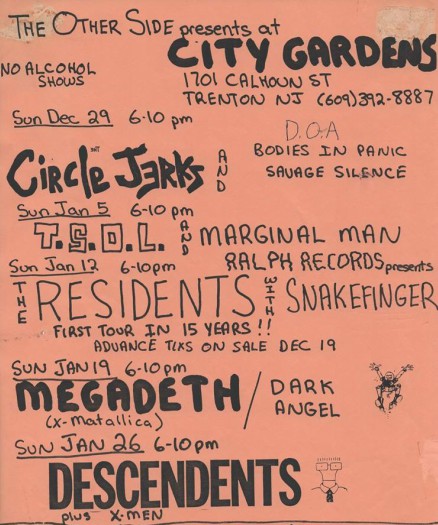 THE OTHER SIDE presents at
CITY GARDENS
NO ALCOHOL
SHOWS
1701 CALHOUN ST
TRENTON NJ (609)392-8887
Sun Dec 29 6-10 pm
CIRCLE JERKS AND
D.O.A
BODIES IN PANIC
SAVAGE SILENCE
Sun Jan 5 6-10 pm
T.S.O.L. AND MARGINAL MAN
Sun Jan 12 6-10pm
RALPH RECORDS presents
THE RESIDENTS WITH SNAKEFINGER
FIRST TOUR IN 15 YEARS !!
ADVANCE TIXS ON SALE DEC 19
SUN JAN 19 6-10pm
MEGADETH / DARK
ANGEL
(x-Matallica)
SUN JAN 26 6-10 pm
DESCENDENTS
plus X-MEN